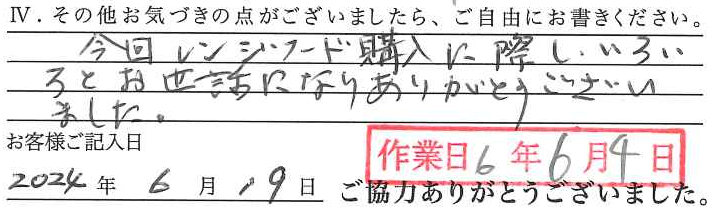 Ⅳ．その他お気づきの点がございましたら、ご自由にお書きください。
今回レンジフード購入に際し、いろい
ろとお世話になりありがとうござい
ました。
お客様ご記入日
作業日 6 年 6 月 4 日
2024 年 6 月 19 日 ご協力ありがとうございました。